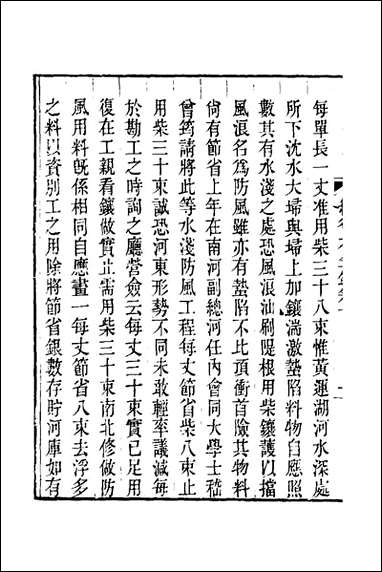 每單長一丈准用柴三十八束惟黃運湖河水深處
所下沈水大埽與埽上加鑲湍激蟄陷料物自應照
數其有水淺之處恐風浪汕刷隄根用柴鑲護以擋
風浪名為防風雖亦有蟄陷不比頂衝首險其物料
尙有節省上年在南河副總河任內會同大學士嵇
曾筠請將此等水淺防風工程每丈節省柴八束止
用柴三十束誠恐河東形勢不同未敢輕率議減每
於勘工之時詢之廳營僉云每丈三十束實已足用
復在工親看鑲做實止需用柴三十束南北修做防
風用料旣係相同自應畫一每丈節省八束去浮多
之料以資別工之用除將節省銀數存貯河庫如有